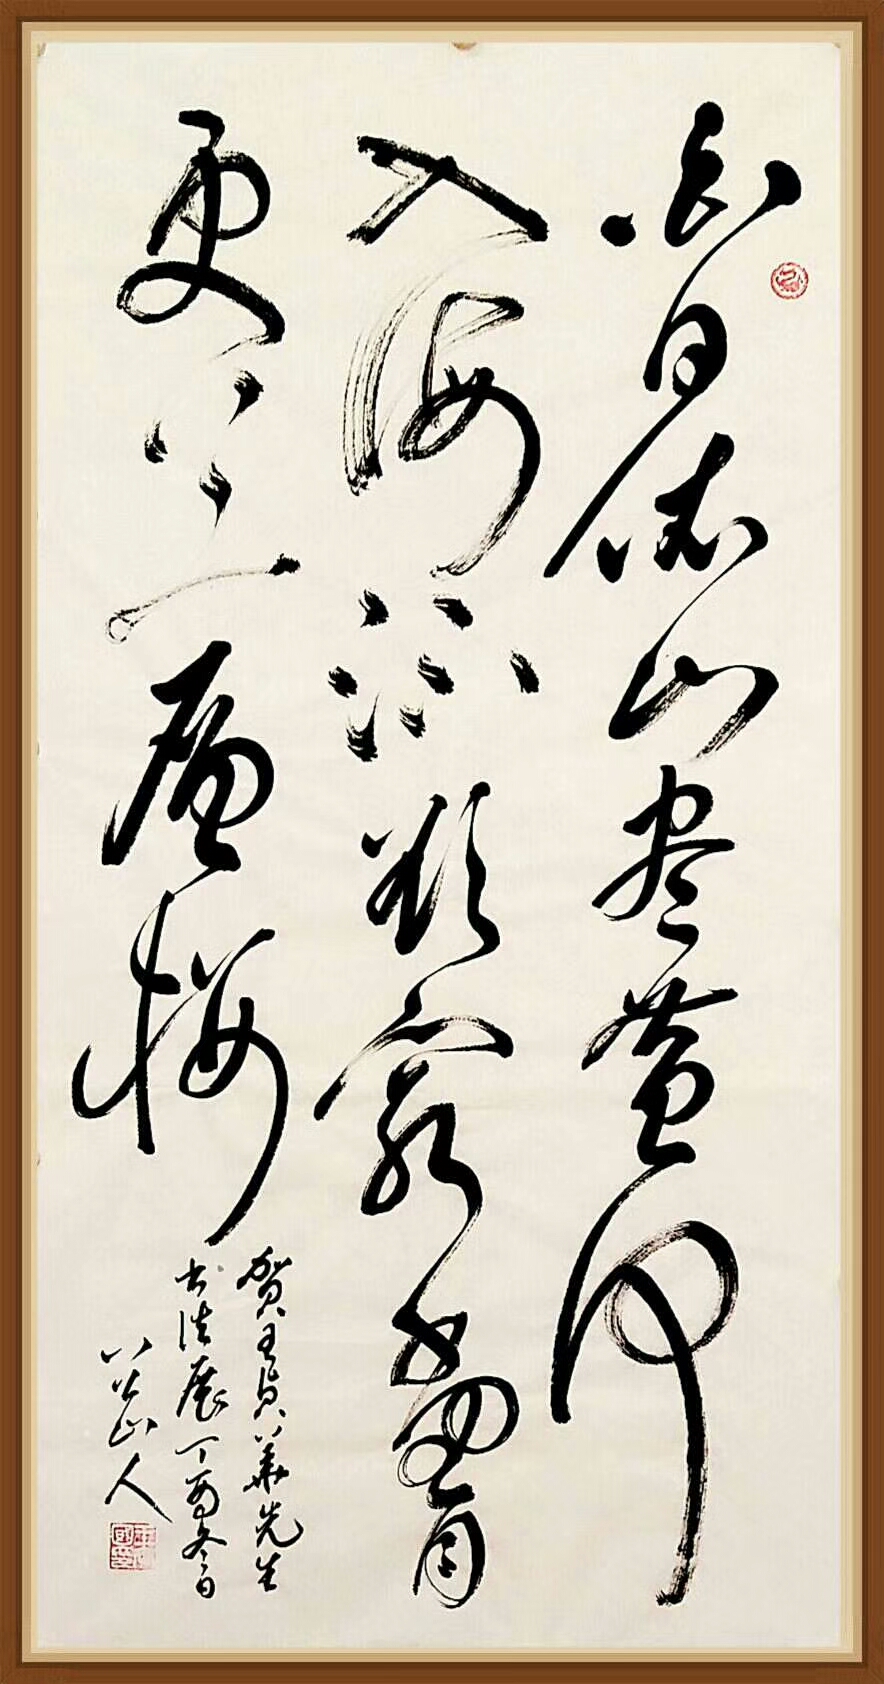 白日依山尽黄河
入海流欲窮千里目
更上一層樓
贺王贞華先生
书法展丁酉冬日
八公山人